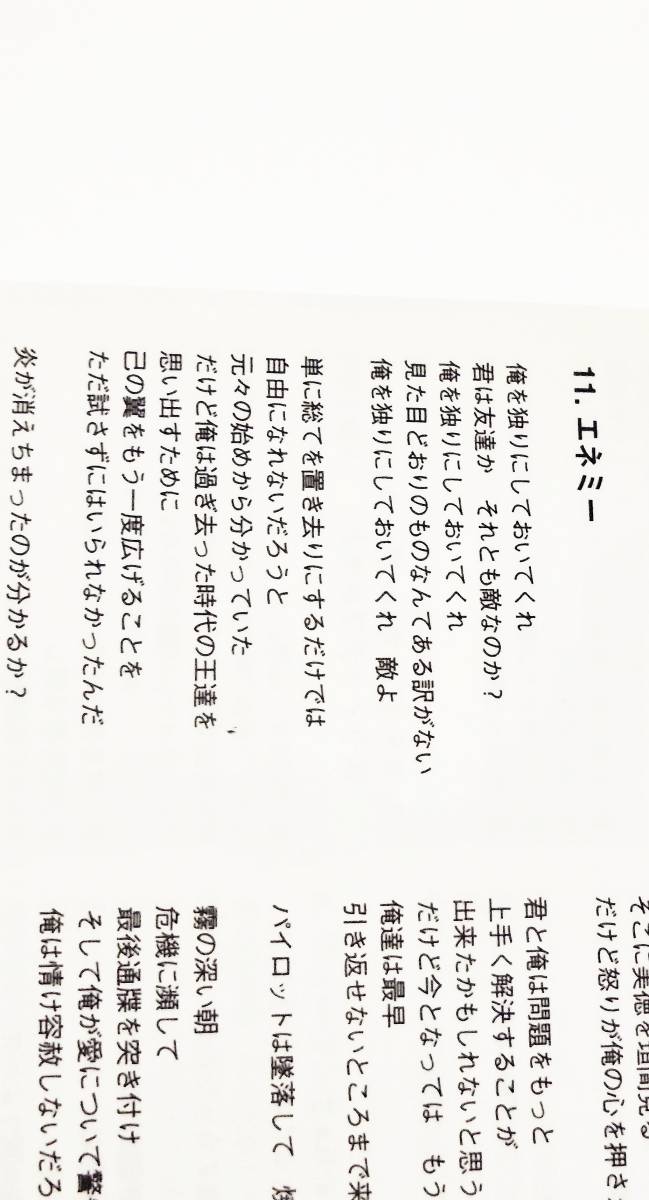 11. エネミー
俺を独りにしておいてくれ
君は友達か　それとも敵なのか？
俺を独りにしておいてくれ
見た目どおりのものなんてある訳がない
俺を独りにしておいてくれ　敵よ
単に総てを置き去りにするだけでは
自由になれないだろうと
元々の始めから分かっていた
だけど俺は過ぎ去った時代の王達を
思い出すために
己の翼をもう一度広げることを
ただ試さずにはいられなかったんだ
炎が消えちまったのが分かるか？
そこに美徳を垣間見る
だけど怒りが俺の心を押さ
君と俺は問題をもっと
上手く解決することが
出来たかもしれないと思う
だけど今となっては　もう
俺達は最早
引き返せないところまで来
パイロットは墜落して
霧の深い朝
危機に瀕して
最後通牒を突き付け
そして俺が愛について
俺は情け容赦しないだろ